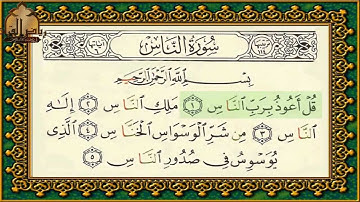 سُورَةُ النَّاسِ
بِسْمِ اللَّهِ الرَّحْمَٰنِ الرَّحِيمِ
قُلْ أَعُوذُ بِرَبِّ النَّاسِ ۝١ مَلِكِ النَّاسِ ۝٢ إِلَٰهِ
النَّاسِ ۝٣ مِن شَرِّ الْوَسْوَاسِ الْخَنَّاسِ ۝٤ الَّذِي
يُوَسْوِسُ فِي صُدُورِ النَّاسِ ۝٥